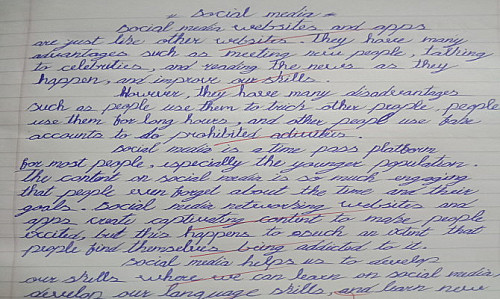 = Social media =
Social media websites and apps
are just like other websites. They have many
advantages such as meeting new people, talking
to celebrities, and reading the news as they
happen, and improve our skills.
However, they have many disadvantages
such as people use them to trick other people people
use them for long hours, and other people use fake
accounts to do prohibited activities.
Social media is a time pass platform
for most people, especially the younger population.
The content on social media is so much engaging
that people even forget about the time and their
goals. Social media networking websites and
apps create captivating content to make people
excited, but this happens to such an extent that
people find themselves being addicted to it.
Social media helps us to develop
our skills where we can learn on social media,
develop our language skills, and learn new